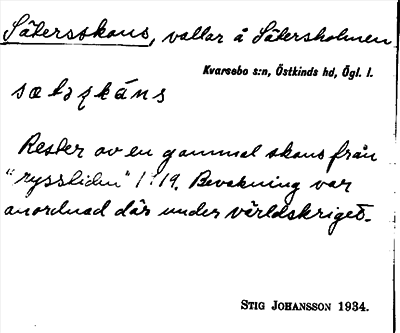 Sätersskans, vallar å Sätersholmen
Kvarsebo s:n, Östkinds hd, Ögl. l.
Rester av en gammal skans från
"rysstiden" 1719. Bevakning var
anordnad där under världskriget.
STIG JOHANSSON 1934.